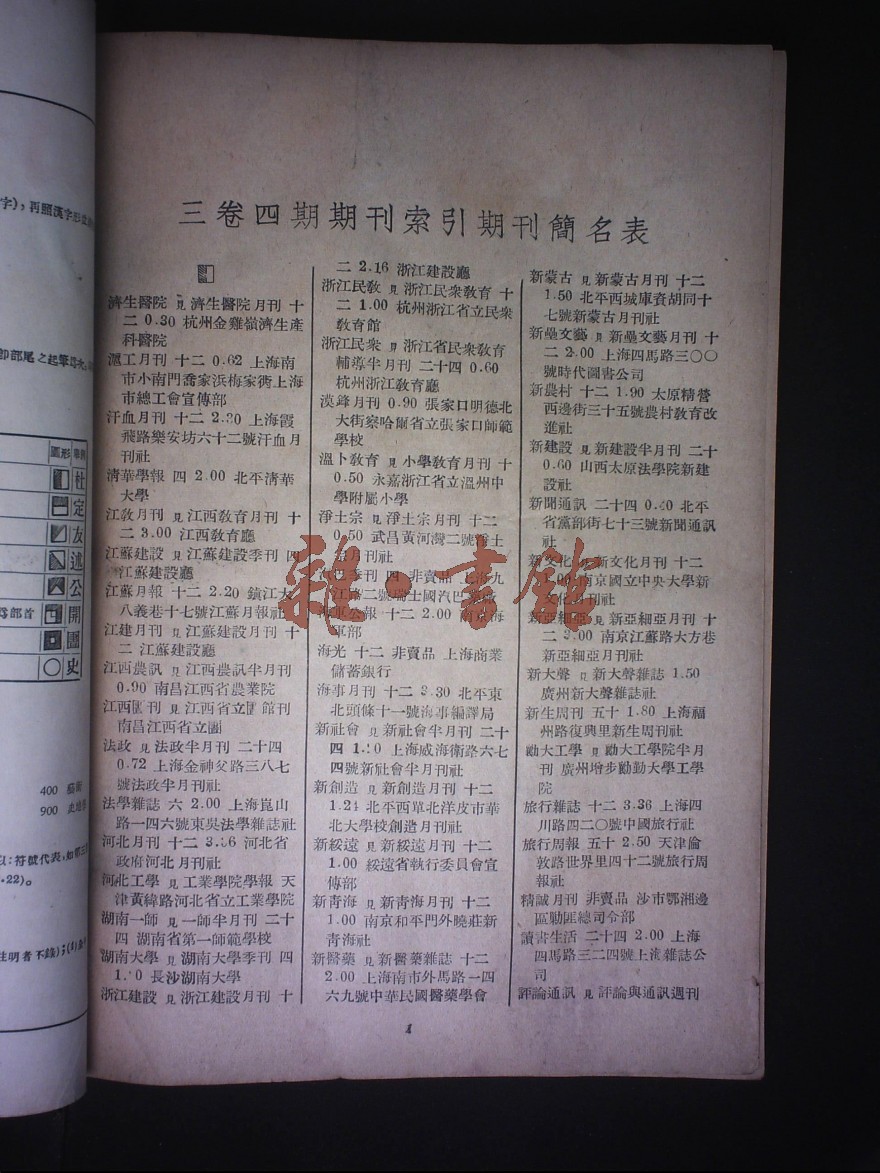 三卷四期期刊索引期刊簡名表
濟生醫院 見 濟生醫院月刊 十
二 0.30 杭州金雞嶺濟生產
科醫院
滬工月刊 十二 0.62 上海南
市小南門喬家浜梅家衖上海
市總工會宣傳部
汗血月刊 十二 2.30 上海霞
飛路樂安坊六十二號汗血月
刊社
清華學報 四 2.00 北平清華
大學
江敎月刊 見 江西敎育月刊 十
二 3.00 江西敎育廳
江蘇建設 見 江蘇建設季刊 四
江蘇建設廳
江蘇月報 十二 2.20 鎮江大
八義巷十七號江蘇月報社
江建月刊 見 江蘇建設月刊 十
二 江蘇建設廳
江西農訊 見 江西農訊半月刊
0.90 南昌江西省農業院
江西圕刊 見 江西省立圕館刊
南昌江西省立圕
法政 見 法政半月刊 二十四
0.72 上海金神父路三八七
號法政半月刊社
法學雜誌 六 2.00 上海崑山
路一四六號東吳法學雜誌社
河北月刊 十二 3.36 河北省
政府河北月刊社
河北工學 見 工業學院學報 天
津黃緯路河北省立工業學院
湖南一師 見 一師半月刊 二十
四 湖南省第一師範學校
湖南大學 見 湖南大學季刊 四
長沙湖南大學
浙江建設 見 浙江建設月刊 十
二 2.16 浙江建設廳
浙江民敎 見 浙江民衆敎育 十
二 1.00 杭州浙江省立民衆
敎育館
浙江民衆 見 浙江省民衆敎育
輔導半月刊 二十四 0.60
杭州浙江敎育廳
漠鋒月刊 0.90 張家口明德北
大街察哈爾省立張家口師範
學校
溫卜敎育 見 小學敎育月刊 十
0.50 永嘉浙江省立溫州中
學附屬小學
淨土宗 見 淨土宗月刊 十二
0.50 武昌黃河灣二號淨土
宗月刊社
季刊 四 非賣品 上海九
江路二號瑞士國汽巴
海軍公報 十二 2.00 南京海
軍部
海光 十二 非賣品 上海商業
儲蓄銀行
海事月刊 十二 3.30 北平東
北頭條十一號海事編譯局
新社會 見 新社會半月刊 二十
四 上海威海衛路六七
四號新社會半月刊社
新創造 見 新創造月刊 十二
1.24 北平西單北洋皮市華
北大學校創造月刊社
新綏遠 見 新綏遠月刊 十二
1.00 綏遠省執行委員會宣
傳部
新靑海 見 新靑海月刊 十二
1.00 南京和平門外曉莊新
靑海社
新醫藥 見 新醫藥雜誌 十二
2.00 上海南市外馬路一四
六九號中華民國醫藥學會
新蒙古 見 新蒙古月刊 十二
1.50 北平西城庫資胡同十
七號新蒙古月刊社
新壘文藝 見 新壘文藝月刊 十
二 2.00 上海四馬路三〇〇
號時代圖書公司
新農村 十二 1.90 太原精營
西邊街三十五號農村敎育改
進社
新建設 見 新建設半月刊 二十
0.60 山西太原法學院新建
設社
新聞通訊 二十四 0.40 北平
省黨部街七十三號新聞通訊
社
新文化 見 新文化月刊 十二
1.00 南京國立中央大學新
文化月刊社
新亞細亞 見 新亞細亞月刊 十
二 3.00 南京江蘇路大方巷
新亞細亞月刊社
新大聲 見 新大聲雜誌 1.50
廣州新大聲雜誌社
新生周刊 五十 1.80 上海福
州路復興里新生周刊社
勷大工學 見 勷大工學院半月
刊 廣州增步勷勤大學工學
院
旅行雜誌 十二 3.36 上海四
川路四二〇號中國旅行社
旅行周報 五十 2.50 天津倫
敦路世界里四十二號旅行周
報社
精誠月刊 非賣品 沙市鄂湘邊
區勦匪總司令部
讀書生活 二十四 2.00 上海
四馬路三二四號上海雜誌公
司
評論通訊 見 評論與通訊週刊
1
字),再照漢字形
即部尾之起筆
圖形 舉例
杜
定
友
述
公
爲部首 開
圕
史
400 藝術
900 史地
以:符號代表,如第三
.22)。
註明者不錄);(4)
雜書館